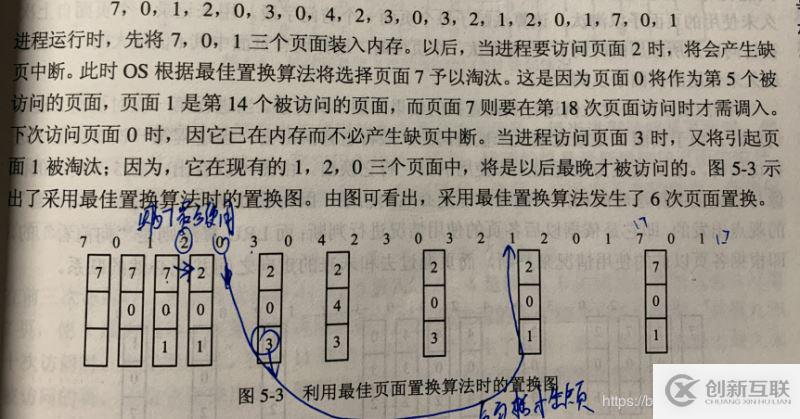 7，0，1，2，0，3，0，4，2，3，0，3，2，1，2，0，1，7，0，1
进程运行时，先将 7，0，1 三个页面装入内存。以后，当进程要访问页面 2 时，将会产生缺
页中断。此时 OS 根据最佳置换算法将选择页面 7 予以淘汰。这是因为页面 0 将作为第 5 个被
访问的页面，页面 1 是第 14 个被访问的页面，而页面 7 则要在第 18 次页面访问时才需调入。
下次访问页面 0 时，因它已在内存而不必产生缺页中断。当进程访问页面 3 时，又将引起页
面 1 被淘汰；因为，它在现有的 1，2，0 三个页面中，将是以后最晚才被访问的。图 5-3 示
出了采用最佳置换算法时的置换图。由图可看出，采用最佳置换算法发生了 6 次页面置换。
使用 17 17
7 0 1 2 0 3 0 4 2 3 0 3 2 1 2 0 1 7 0 1
7 7 7 2 2 2 2 2 7
0 0 0 0 4 0 0 0
1 1 3 3 3 1 1
图 5-3 利用最佳页面置换算法时的置换图
https://b
创新互联
CHUANG XIN HU LIAN